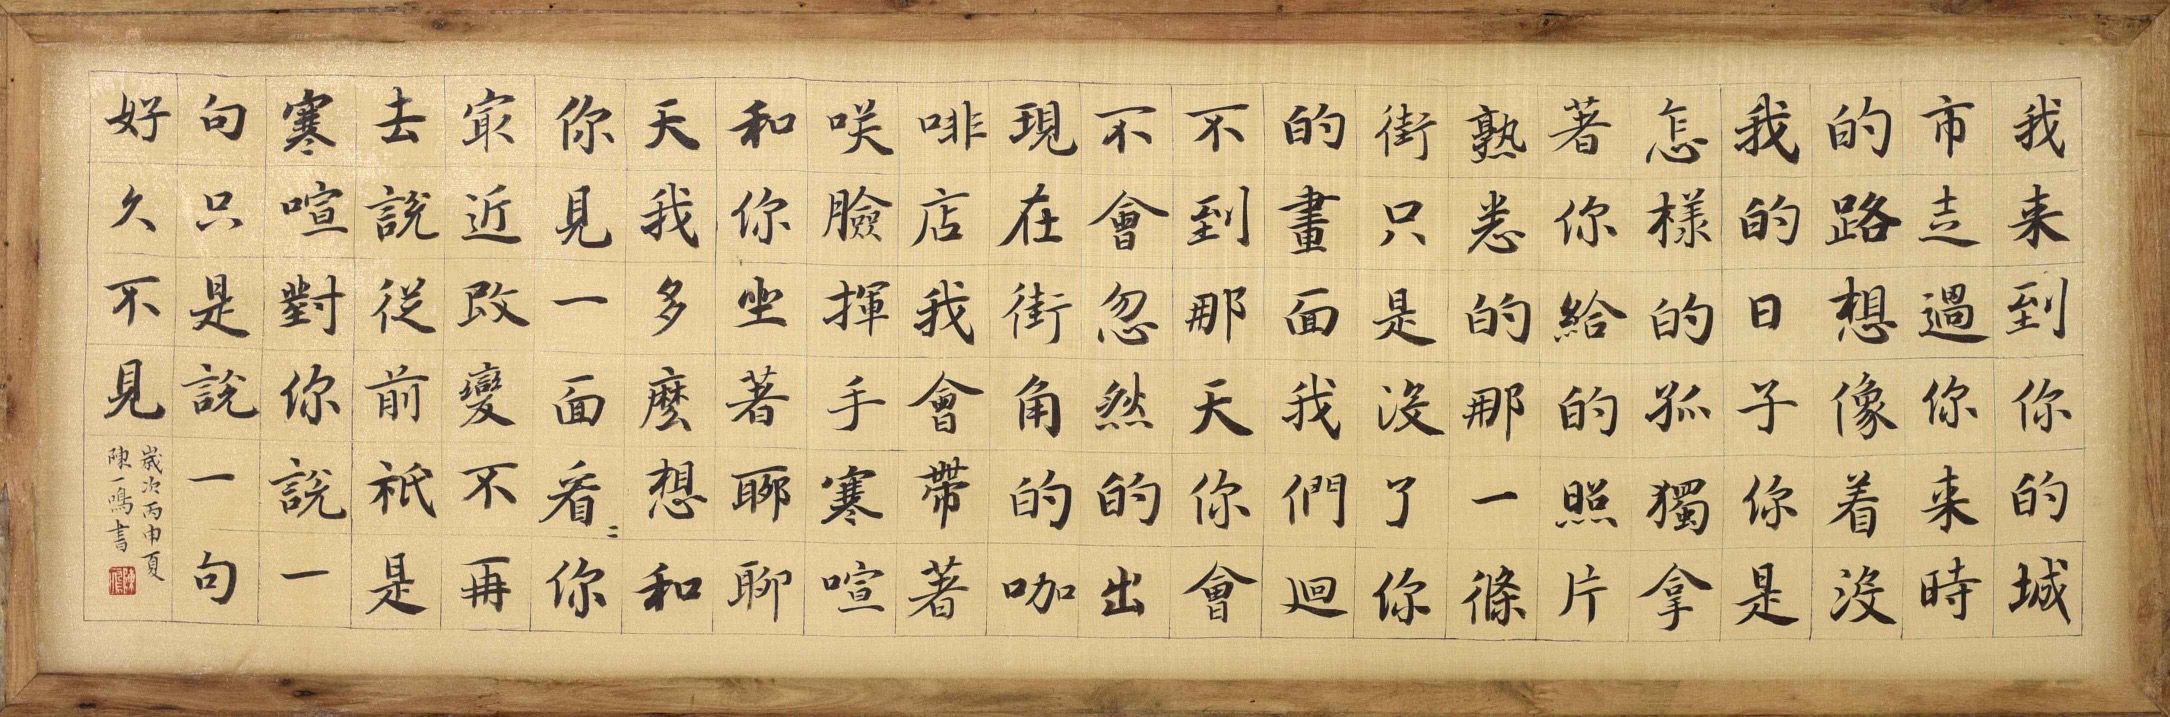 我来到你的城
市走過你来時
的路想像着沒
我的日子你是
怎樣的孤獨拿
著你給的照片
熟悉的那一條
街只是沒了你
的畫面我們迴
不到那天你會
不會忽然的出
現在街角的咖
啡店我會帶著
咲臉揮手寒喧
和你坐著聊聊
天我多麼想和
你見一面看〻你
冣近改變不再
去說從前衹是
寒喧對你說一
句只是說一句
好久不見
歲次丙申夏
陳一鳴書